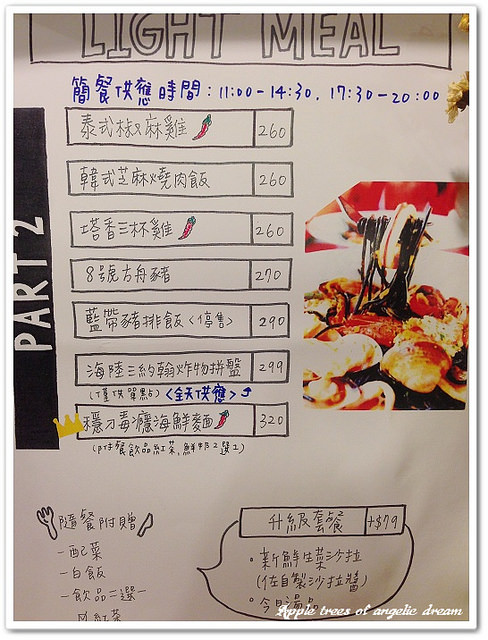 LIGHT MEAL
簡餐供應時間：11:00-14:30. 17:30-20:00
PART 2
泰式椒麻雞 260
韓式芝麻燒肉飯 260
塔香三杯雞 260
8號方舟豬 270
藍帶豬排飯<停售> 290
海陸三約翰炸物拼盤 299
(僅供單點) <全天供應>
穩刁毒癮海鮮麵 320
(附餐飲品紅茶,鮮奶2選1)
隨餐附贈
-配菜
-白飯
-飲品二選一
紅茶
升級套餐 +$79
。新鮮生菜沙拉
(佐自製沙拉醬)
。今日湯品
Apple trees of angelic dream